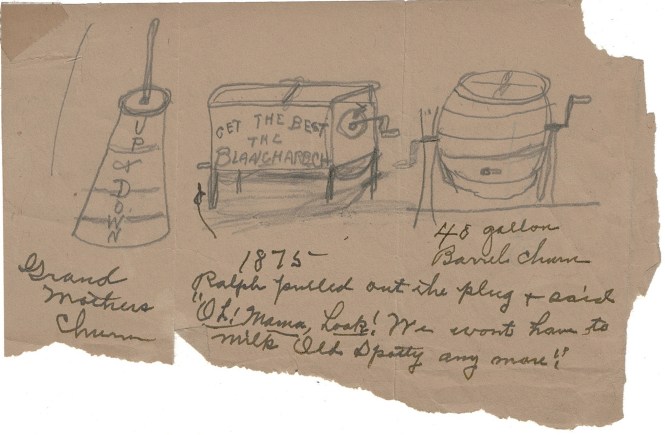 UP & DOWN
GET THE BEST
THE
BLANCHARD CH
Grand
Mothers
Churn
1875
48 gallon
Barrel Churn
Ralph pulled out the plug & said
"Oh! Mama, Look! We wont have to
milk Old Spotty any more!"